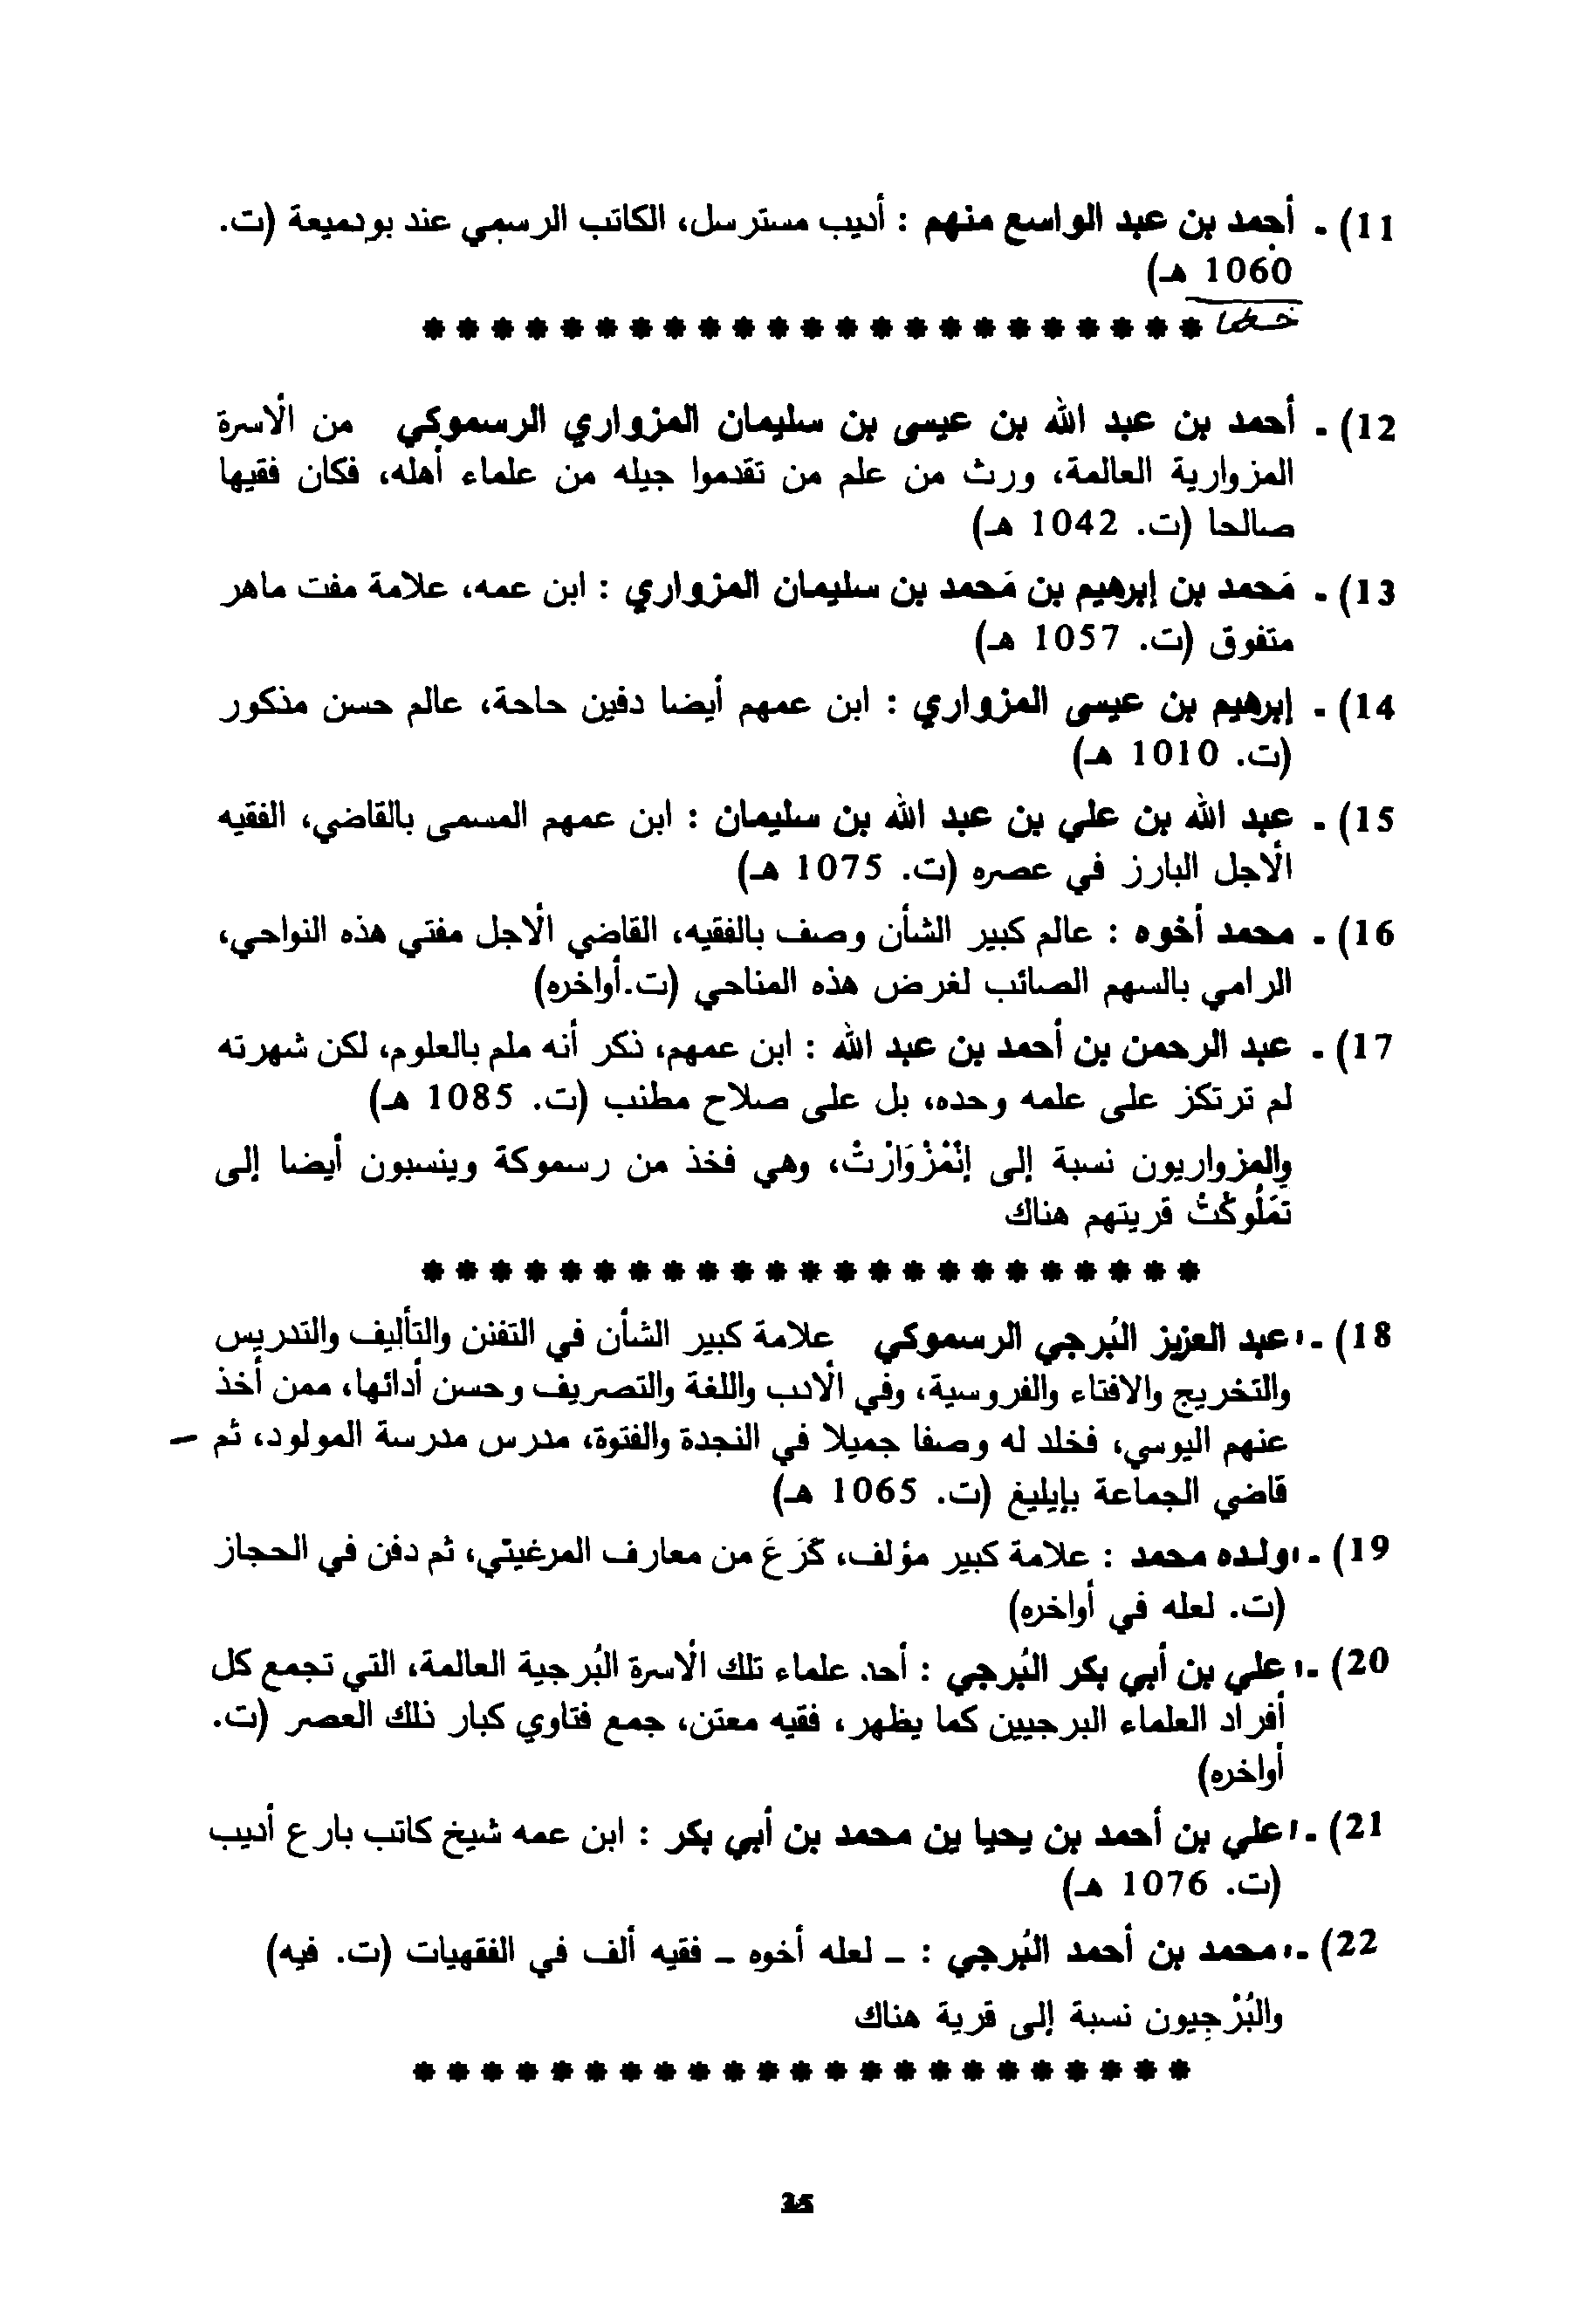 11) - أحمد بن عبد الواسع منهم : أديب مسترسل، الكاتب الرسمي عند بودميعة (ت.
1060 هـ)
خطأ * * * * * * * * * * * * * * * * * * * * * * *
12) - أحمد بن عبد الله بن عيسى بن سليمان المزواري الرسموكي من الأسرة
المزوارية العالمة، ورث من علم من تقدموا جيله من علماء أهله، فكان فقيها
صالحا (ت. 1042 هـ)
13) - مَحمد بن إبرهيم بن مَحمد بن سليمان المزواري : ابن عمه، علامة مفت ماهر
متفوق (ت. 1057 هـ)
14) - إبرهيم بن عيسى المزواري : ابن عمهم أيضا دفين حاحة، عالم حسن مذكور
(ت. 1010 هـ)
15) - عبد الله بن علي بن عبد الله بن سليمان : ابن عمهم المسمى بالقاضي، الفقيه
الأجل البارز في عصره (ت. 1075 هـ)
16) - محمد أخوه : عالم كبير الشأن وصف بالفقيه، القاضي الأجل مفتي هذه النواحي،
الرامي بالسهم الصائب لغرض هذه المناحي (ت.أواخره)
17) - عبد الرحمن بن أحمد بن عبد الله : ابن عمهم، ذكر أنه ملم بالعلوم، لكن شهرته
لم ترتكز على علمه وحده، بل على صلاح مطنب (ت. 1085 هـ)
والمزواريون نسبة إلى إنْمْزْوَارْتْ، وهي فخذ من رسموكة وينسبون أيضا إلى
تَمَلُوكْتْ قريتهم هناك
* * * * * * * * * * * * * * * * * * * * * * *
18) - عبد العزيز البُرجي الرسموكي علامة كبير الشأن في التفنن والتأليف والتدريس
والتخريج والافتاء والفروسية، وفي الأدب واللغة والتصريف وحسن أدائها، ممن أخذ
عنهم اليوسي، فخلد له وصفا جميلا في النجدة والفتوة، مدرس مدرسة المولود، ثم –
قاضي الجماعة بإيليغ (ت. 1065 هـ)
19) - ولده محمد : علامة كبير مؤلف، كَرَعَ من معارف المرغيتي، ثم دفن في الحجاز
(ت. لعله في أواخره)
20) - علي بن أبي بكر البُرجي : أحد علماء تلك الأسرة البُرجية العالمة، التي تجمع كل
أفراد العلماء البرجيين كما يظهر، فقيه معتن، جمع فتاوي كبار ذلك العصر (ت.
أواخره)
21) - علي بن أحمد بن يحيا بن محمد بن أبي بكر : ابن عمه شيخ كاتب بارع أديب
(ت. 1076 هـ)
22) - محمد بن أحمد البُرجي : – لعله أخوه – فقيه ألف في الفقهيات (ت. فيه)
والبُرْجِيون نسبة إلى قرية هناك
* * * * * * * * * * * * * * * * * * * * * * *
35